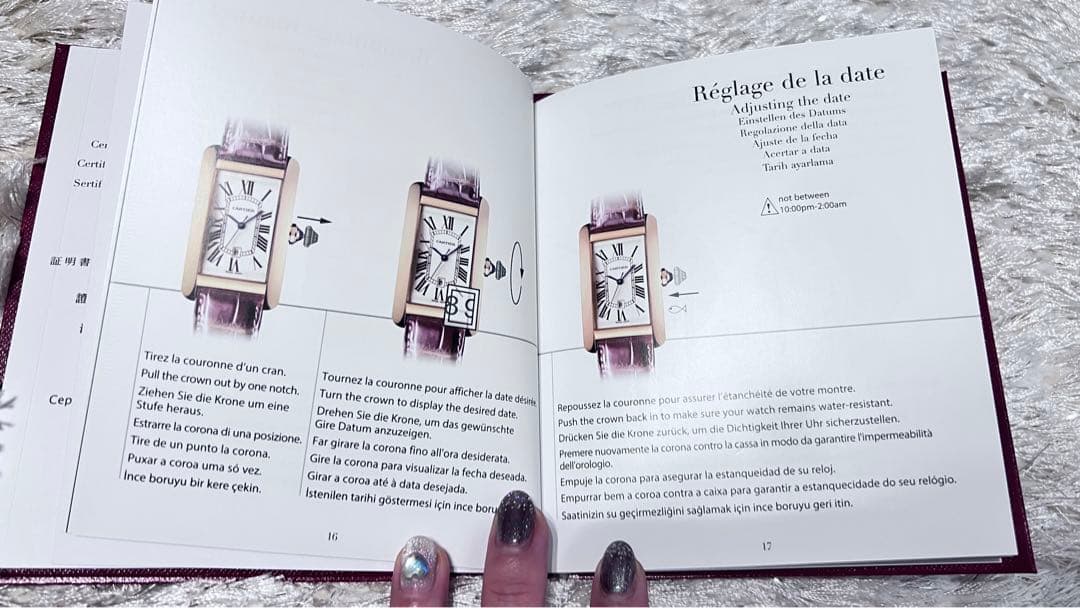 Cer
Certif
Sertif
証明書
證
i
Cep
CARTIER
Tirez la couronne d'un cran.
Pull the crown out by one notch.
Ziehen Sie die Krone um eine
Stufe heraus.
Estrarre la corona di una posizione.
Tire de un punto la corona.
Puxar a coroa uma só vez.
İnce boruyu bir kere çekin.
CARTIER
Tournez la couronne pour afficher la date désirée.
Turn the crown to display the desired date.
Drehen Sie die Krone, um das gewünschte
Gire Datum anzuzeigen.
Far girare la corona fino all'ora desiderata.
Gire la corona para visualizar la fecha deseada.
Girar a coroa até à data desejada.
İstenilen tarihi göstermesi için ince boru
16
Réglage de la date
Adjusting the date
Einstellen des Datums
Regolazione della data
Ajuste de la fecha
Acertar a data
Tarih ayarlama
not between
10:00pm-2:00am
CARTIER
Repoussez la couronne pour assurer l'étanchéité de votre montre.
Push the crown back in to make sure your watch remains water-resistant.
Drücken Sie die Krone zurück, um die Dichtigkeit Ihrer Uhr sicherzustellen.
Premere nuovamente la corona contro la cassa in modo da garantire l'impermeabilità
dell'orologio.
Empuje la corona para asegurar la estanqueidad de su reloj.
Empurrar bem a coroa contra a caixa para garantir a estanquecidade do seu relógio.
Saatinizin su geçirmezliğini sağlamak için ince boruyu geri itin.
17